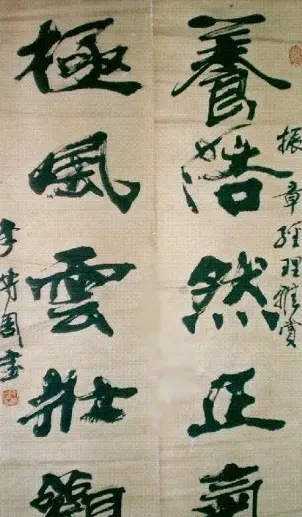 養浩然正氣
振章經理雅賞
極風雲壯觀
李周書